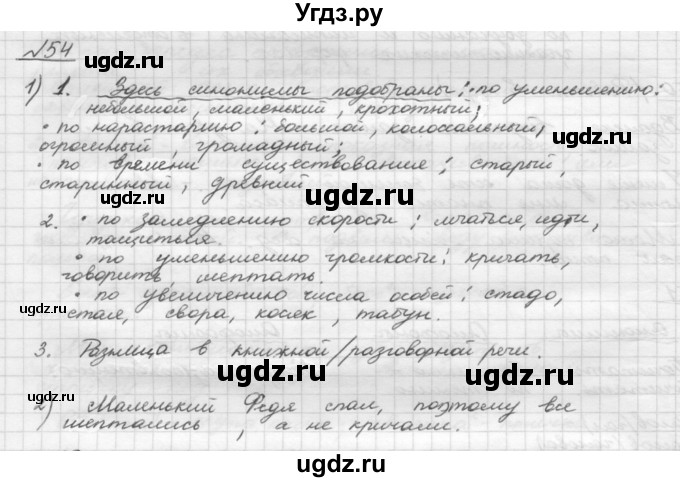 Угдз.ру
№54
1) 1. Здесь синонимы подобраны: · по уменьшению:
небольшой, маленький, крохотный;
· по нарастарию: большой, колоссальный,
огромный, громадный;
· по времени существования: старый,
старинный, древний
2. · по замедлению скорости: мчаться, идти,
тащиться.
· по уменьшению громкости: кричать,
говорить, шептать.
· по увеличению числа особей: стадо,
стая, свора, косяк, табун.
3. Разница в книжной/разговорной речи.
2) Маленький Федя спал, поэтому все
шептались, а не кричали.
ugdz.ru
ugdz.ru
ugdz.ru
ugdz.ru
ugdz.ru
ugdz.ru
ugdz.ru
ugdz.ru
ugdz.ru
ugdz.ru
ugdz.ru
ugdz.ru
ugdz.ru